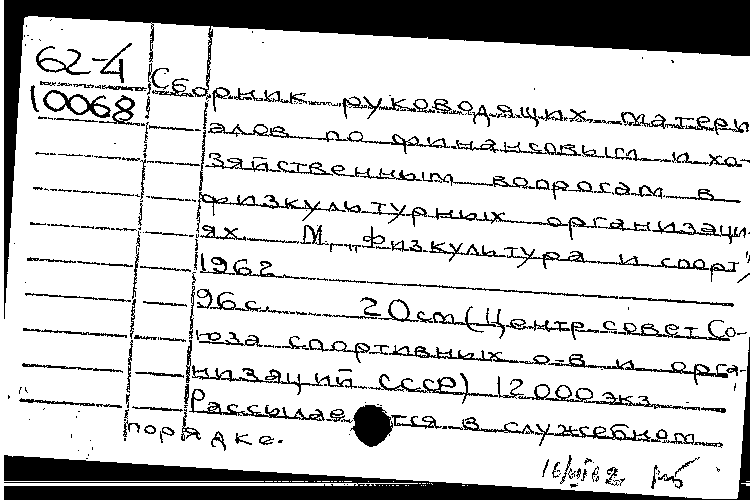 62-4
10068
Сборник руководящих матери
алов по финансовым и хо-
зяйственным вопросам в
физкультурных организаци-
ях. М, „физкультура и спорт",
1962.
96 с. 20 см (Центр совет Со-
юза спортивных о-в и орга-
низаций СССР) 12000 экз.
Рассылается в служебном
порядке.
16/VI 62